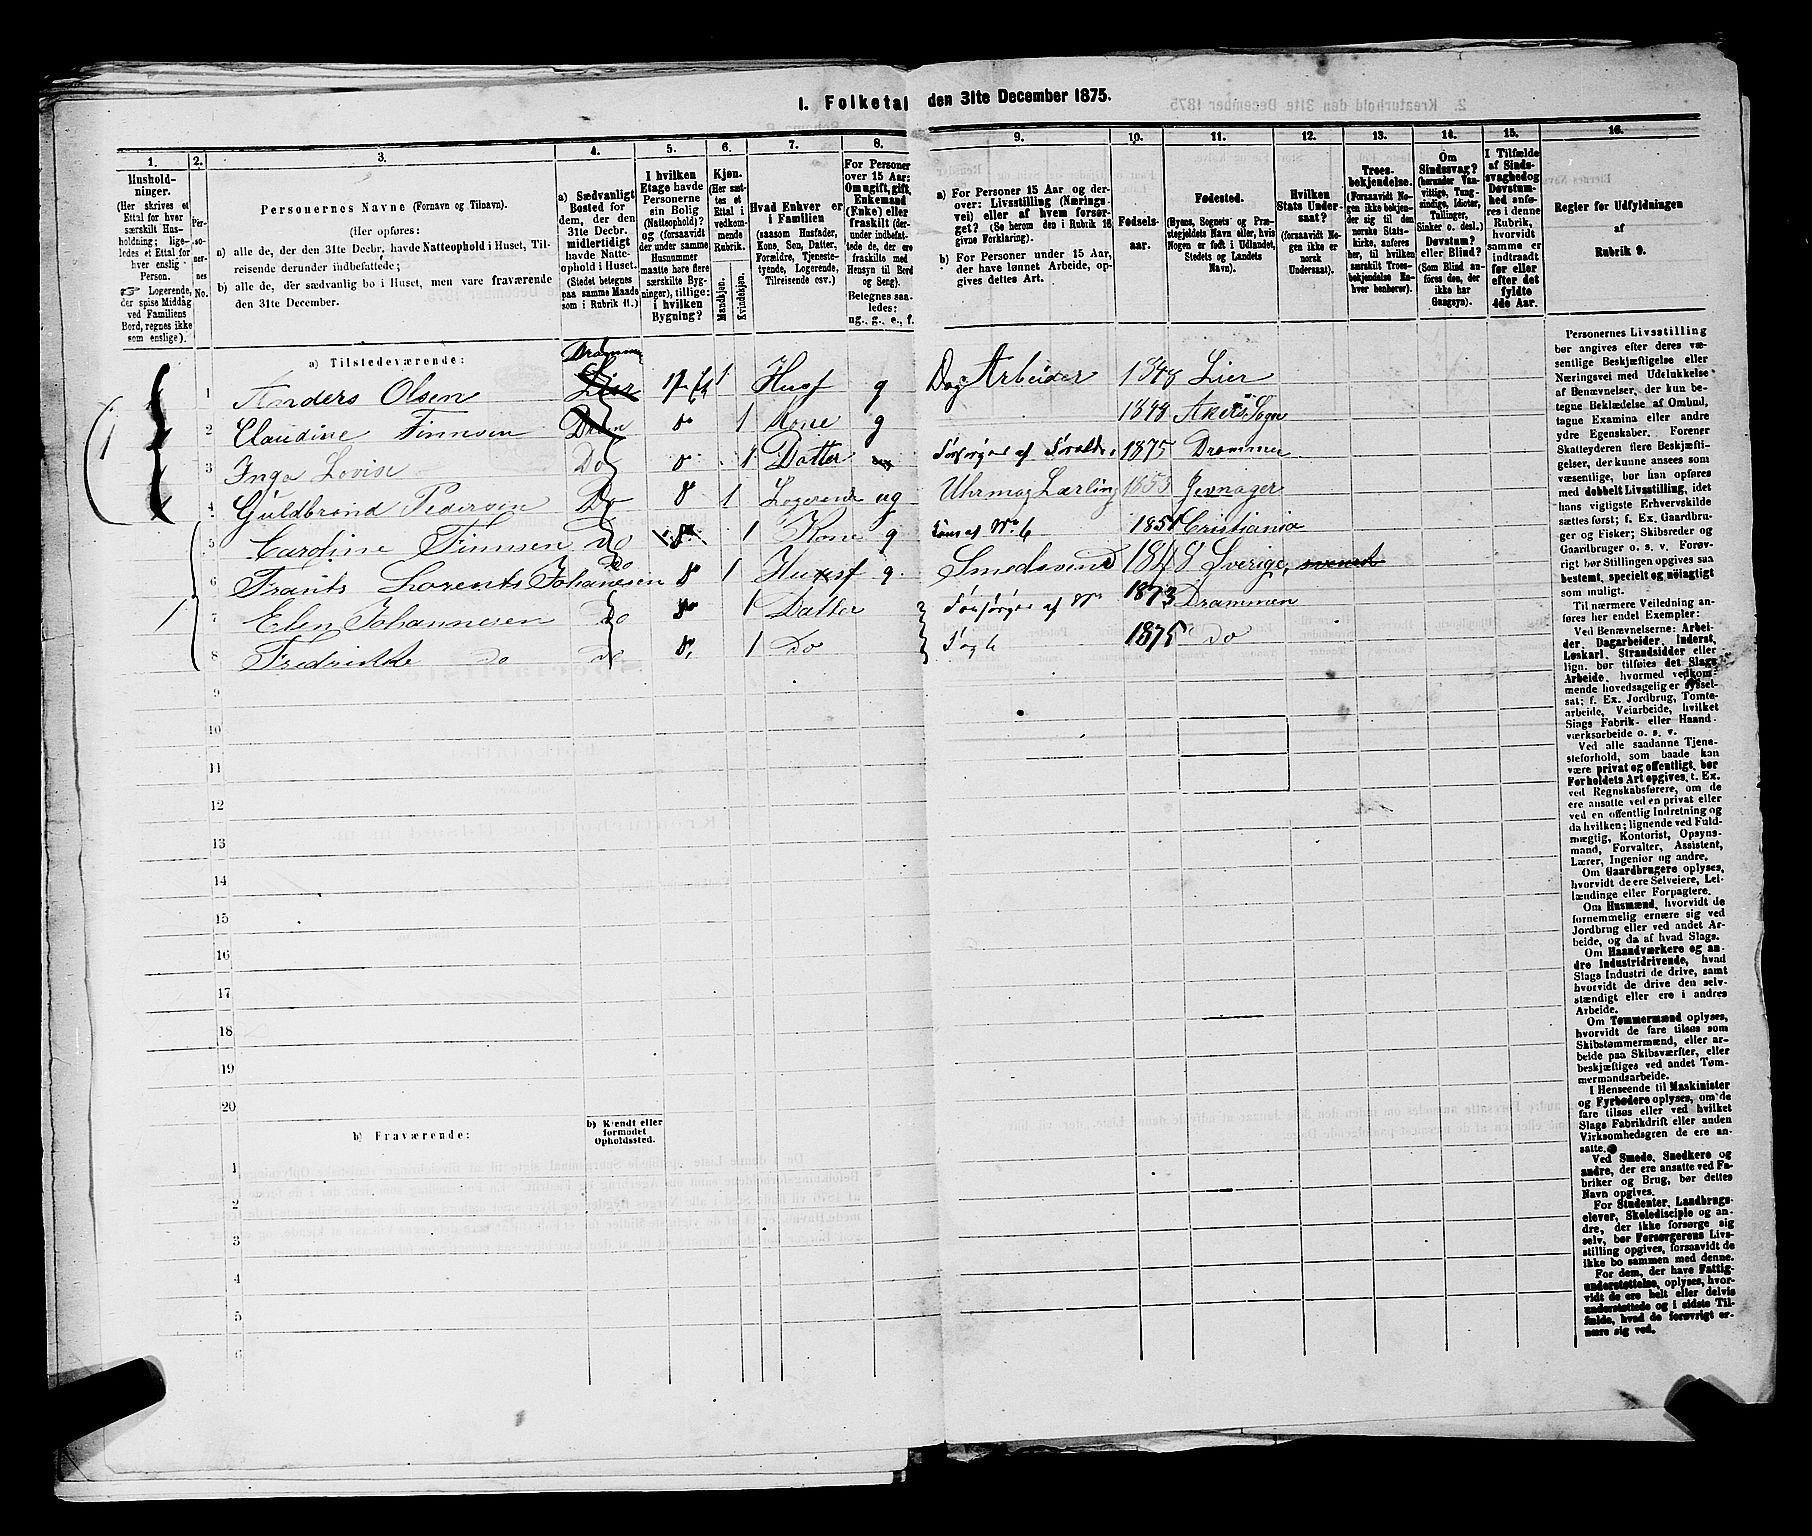 1. Folketal den 31te December 1875.
1. 2. 3. 4. 5. 6. 7. 8. 9. 10. 11. 12. 13. 14. 15. 16.
Hushold-
ninger.
(Her skrives et
Ettal for hver
særskilt Hus-
holdning; lige-
ledes et Ettal for
hver enslig
Person.
☞ Logerende,
der spise Middag
ved Familiens
Bord, regnes ikke
som enslige).
Per-
so-
ner-
nes
No.
Personernes Navne (Fornavn og Tilnavn).
(Her opføres:
a) alle de, der den 31te Decbr. havde Natteophold i Huset, Til-
reisende derunder indbefattede;
b) alle de, der sædvanlig bo i Huset, men vare fraværende
den 31te December.
a) Sædvanligt
Bosted for
dem, der den
31te Decbr.
midlertidigt
havde Natte-
ophold i Huset.
(Stedet betegnes
paa samme Maade
som i Rubrik 11.)
I hvilken
Etage havde
Personerne
sin Bolig
(Natteophold)?
og (forsaavidt
der under samme
Husnummer
maatte høre flere
særskilte Byg-
ninger), tillige:
i hvilken
Bygning?
Kjøn.
(Her sæt-
tes et
Ettal i
vedkom-
mende
Rubrik.
Mandkjøn.
Kvindekjøn.
Hvad Enhver er
i Familien
(saasom Husfader,
Kone, Søn, Datter,
Forældre, Tjeneste-
tyende, Logerende,
Tilreisende osv.)
For Personer
over 15 Aar:
Om ugift, gift,
Enkemand
(Enke) eller
fraskilt (der-
under indbefat-
tede de, der ere
fraskilte med
Hensyn til Bord
og Seng).
Betegnes saa-
ledes:
ug., g., e., f.
a) For Personer 15 Aar og der-
over: Livsstilling (Nærings-
vei) eller af hvem forsør-
get? (Se herom den i Rubrik 16
givne Forklaring).
b) For Personer under 15 Aar,
der have lønnet Arbeide, op-
gives dettes Art.
Fødsels-
aar.
Fødested.
(Byens, Sognets og Præ-
stegjeldets Navn eller, hvis
Nogen er født i Udlandet,
Stedets og Landets
Navn).
Hvilken
Stats Under-
saat?
(forsaavidt No-
gen ikke er
norsk
Undersaat).
Troes-
bekjendelse.
(Forsaavidt No-
gen ikke bekjen-
der sig til den
norske Stats-
kirke, anføres
her, til hvilken
særskilt Troes-
bekjendelse En-
hver henhører).
Om
Sindssvag?
(herunder Van-
vittige, Tung-
sindige, Idioter,
Tullinger,
Sinker o. desl.)
Døvstum?
eller Blind?
(Som Blind an-
føres den, der
ikke har
Gangsyn).
I Tilfælde
af Sinds-
svaghed og
Døvstum-
hed anfø-
res i denne
Rubrik,
hvorvidt
samme er
indtraadt
før eller
efter det
fyldte
4de Aar.
Regler for Udfyldningen
af
Rubrik 9.
a) Tilstedeværende:
Drammen
1 Anders Olsen Lier 1 Husf g Dag Arbeider 1848 Lier
2 Claudine Finnsen Dram do 1 Kone g 1848 Akers Sogn
3 Inga Lovise Do do 1 Datter Forsørges af Foreldre 1875 Drammen
4 Guldbrand Pedersen Do do 1 Logerende ug Uhrmag Lærling 1853 Jevnager
5 Caroline Finnsen Do 1 Kone g Kone af No 6 1851 Cristiania
6 Frants Lorents Johanesen Do do 1 Husf g Smedsvend 1848 Sverige, svensk
1 7 Elen Johannesen Do do 1 Datter Forsørges af No 1873 Drammen
8 Fredrikke do Do do 1 Do 1875 do
9
10
11
12
13
14
15
16
17
18
19
20
b) Fraværende:
b) Kjendt eller
formodet
Opholdssted.
1
2
3
4
5
6
Personernes Livsstilling
bør angives efter deres væ-
sentlige Beskjæftigelse eller
Næringsvei med Udelukkelse
af Benævnelser, der kun be-
tegne Beklædelse af Ombud,
tagne Examina eller andre
ydre Egenskaber. Forener
Skatteyderen flere Beskjæfti-
gelser, der kunne ansees som
væsentlige, bør han opføres
med dobbelt Livsstilling, idet
hans vigtigste Erhvervskilde
sættes først; f. Ex. Gaardbru-
ger og Fisker; Skibsreder og
Gaardbruger o. s. v. Forøv-
rigt bør Stillingen opgives saa
bestemt, specielt og nøiagtigt
som muligt.
Til nærmere Veiledning an-
føres her endel Exempler:
Ved Benævnelserne: Arbei-
der, Dagarbeider, Inderst,
Løskarl, Strandsidder eller
lign. bør tilføies det Slags
Arbeide, hvormed vedkom-
mende hovedsagelig er syssel-
sat; f. Ex. Jordbrug, Tomte-
arbeide, Veiarbeide, hvilket
Slags Fabrik- eller Haand-
værksarbeide o. s. v.
Ved alle saadanne Tjene-
steforhold, som baade kan
være privat og offentligt, bør
Forholdets Art opgives, t. Ex.
ved Regnskabsførere, om de
ere ansatte ved en privat eller
ved en offentlig Indretning og
da hvilken; lignende ved Fuld-
mægtig, Kontorist, Opsyns-
mand, Forvalter, Assistent,
Lærer, Ingeniør og andre.
Om Gaardbrugere oplyses,
hvorvidt de ere Selveiere, Lei-
lændinge eller Forpagtere.
Om Husmænd, hvorvidt de
fornemmelig ernære sig ved
Jordbrug eller ved andet Ar-
beide, og da af hvad Slags.
Om Haandværkere og an-
dre Industridrivende, hvad
Slags Industri de drive, samt
hvorvidt de drive den selv-
stændigt eller ere i andres
Arbeide.
Om Tømmermænd oplyses,
hvorvidt de fare tilsøs som
Skibstømmermænd, eller ar-
beide paa Skibsværfter, eller
beskjæftiges ved andet Tøm-
mermandsarbeide.
I Henseende til Maskinister
og Fyrbødere oplyses, om de
fare tilsøs eller ved hvilket
Slags Fabrikdrift eller anden
Virksomhedsgren de ere an-
satte.
Ved Smede, Snedkere og
andre, der ere ansatte ved Fa-
briker og Brug, bør dettes
Navn opgives.
For Studenter, Landbrugs-
elever, Skoledisciple og an-
dre, der ikke forsørge sig
selv, bør Forsørgerens Livs-
stilling opgives, forsaavidt de
ikke bo sammen med denne.
For dem, der have Fattig-
understøttelse, oplyses, hvor-
vidt de ere helt eller delvis
understøttede og i sidste Til-
fælde, hvad de forøvrigt er-
nære sig ved.